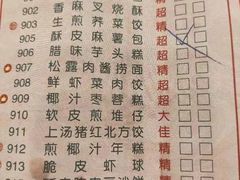 902 麻蓉叉烧酥 超
903 生煎荞菜饺 精
905 酥皮麻薯包 超
906 腊味芋头糕 超
907 松露肉酱捞面 精
908 鲜虾菜肉饺 精
909 椰汁枣蓉糕 超
910 软皮煎堆仔 大
911 上汤猪红北方饺 佳
912 煎椰汁年糕 精
913 脆皮虾球 精